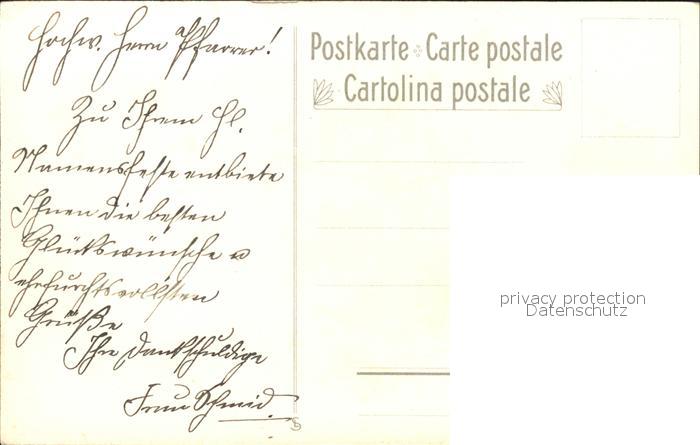 Hochw. Herrn Pfarrer!
Zu Ihrem hl.
Namensfeste entbiete
Ihnen die besten
Glückswünsche u
ehrfurchtsvollsten
Grüße
Ihre dankschuldige
Frau Schmid.
Postkarte Carte postale
Cartolina postale
privacy protection
Datenschutz